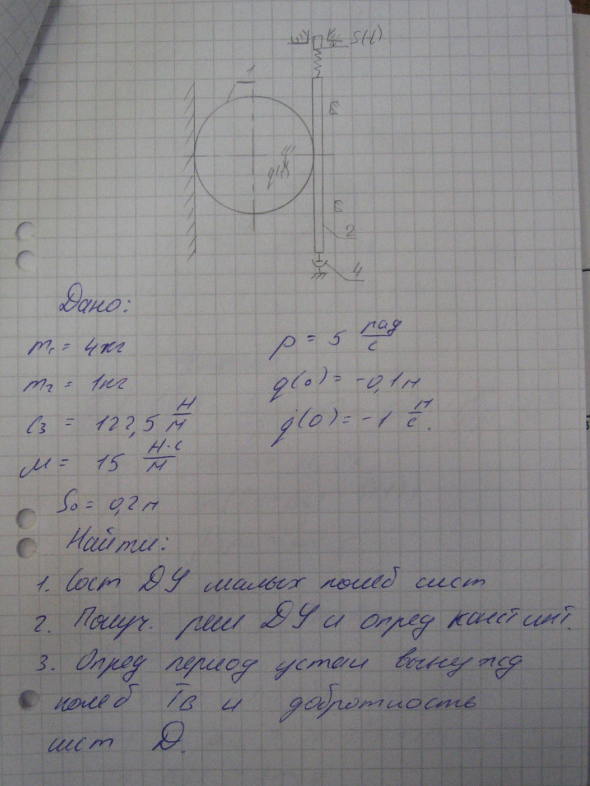 S(t)
1
q(t)
2
4
Дано:
m₁ = 4 кг
m₂ = 1 кг
C₃ = 122,5 Н/м
μ = 15 Н·с/м
S₀ = 0,2 м
p = 5 рад/с
q(0) = -0,1 м
q̇(0) = -1 м/с.
Найти:
1. Сост ДУ малых колеб сист
2. Получ. реш ДУ и опред конст инт.
3. Опред период устан вынужд
колеб Tв и добротность
сист D.